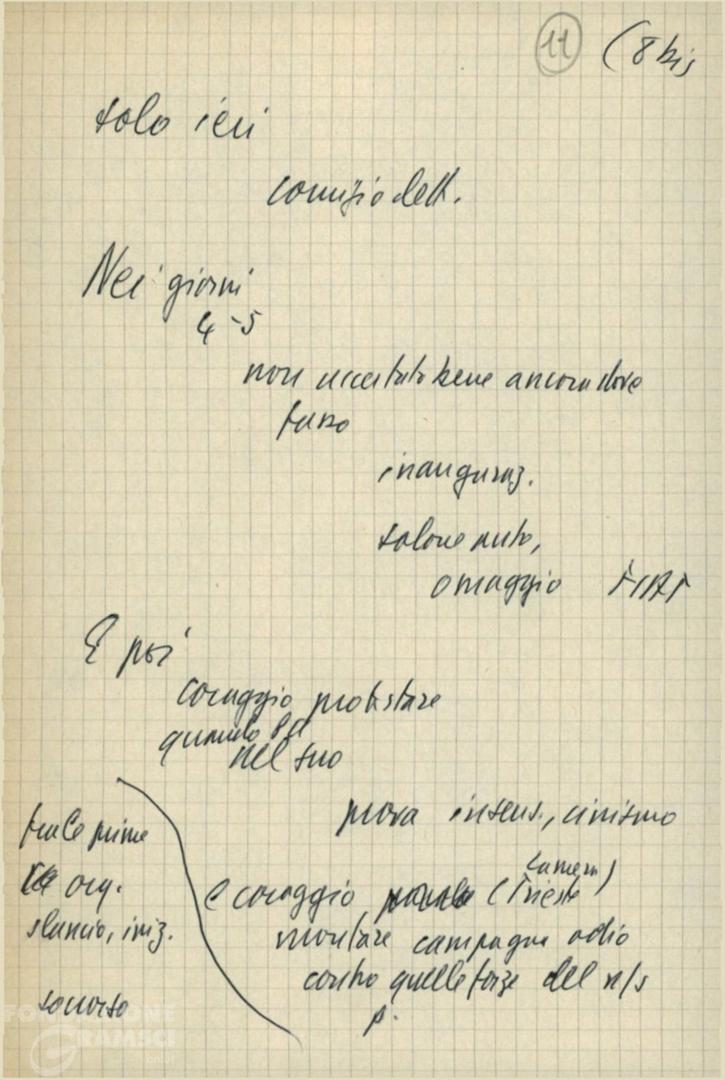 11 (8 bis
solo ieri
comizio elett.
Nei giorni
4-5
non accertato bene ancora dove
fosse
inauguraz.
salone auto,
omaggio FIAT
E poi
coraggio protestare
quando
nel suo
prova insens., cinismo
e coraggio (Trieste
camera)
montare campagna odio
contro quelle forze del n/s
p.
fra le prime
org.
slancio, iniz.
soccorso
FONDAZIONE
GRAMSCI